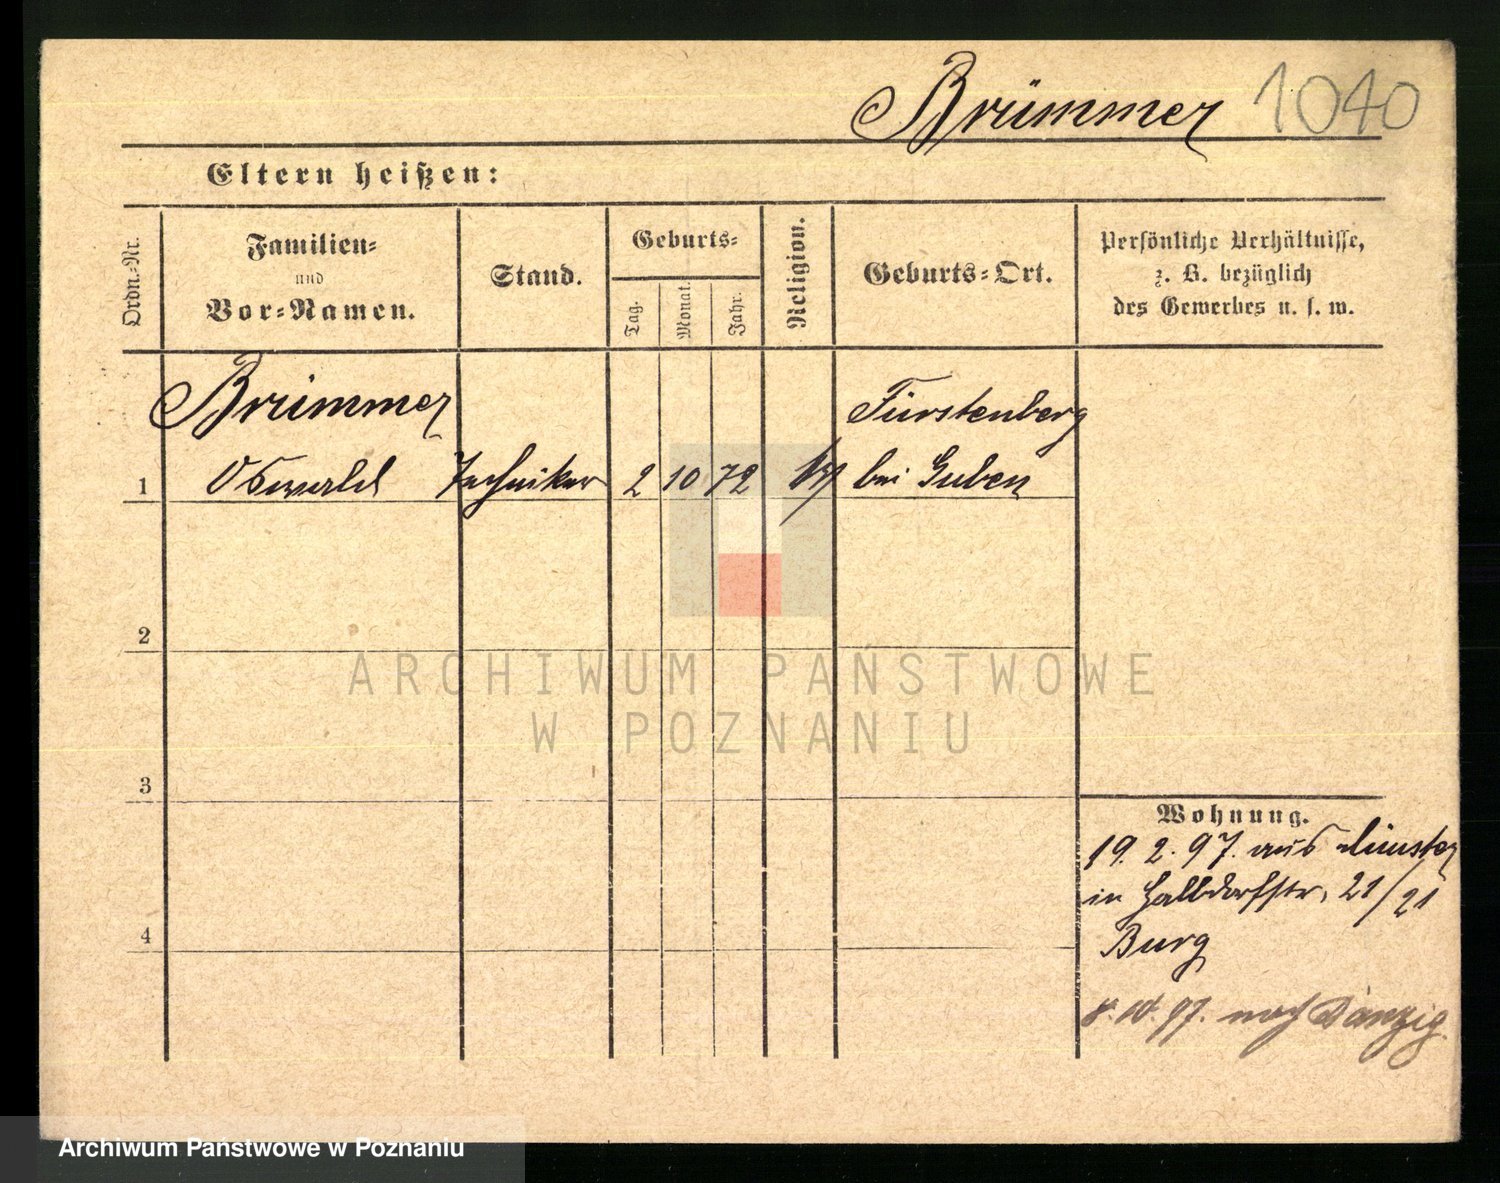 Brümmer 1040
Eltern heißen:
Ordn.-Nr.
Familien-
und
Vor-Namen.
Stand.
Geburts-
Tag.
Monat.
Jahr.
Religion.
Geburts-Ort.
Persönliche Verhältnisse,
z. B. bezüglich
des Gewerbes u. s. w.
Brümmer
Fürstenberg
1 Oswald Techniker 2 10 72 bei Guben
2
ARCHIWUM PAŃSTWOWE
W POZNANIU
3
Wohnung.
19. 2. 97. aus Münster
in Halbdorfstr. 21/21
4
Burg
8. 10. 97. nach Danzig.
Archiwum Państwowe w Poznaniu